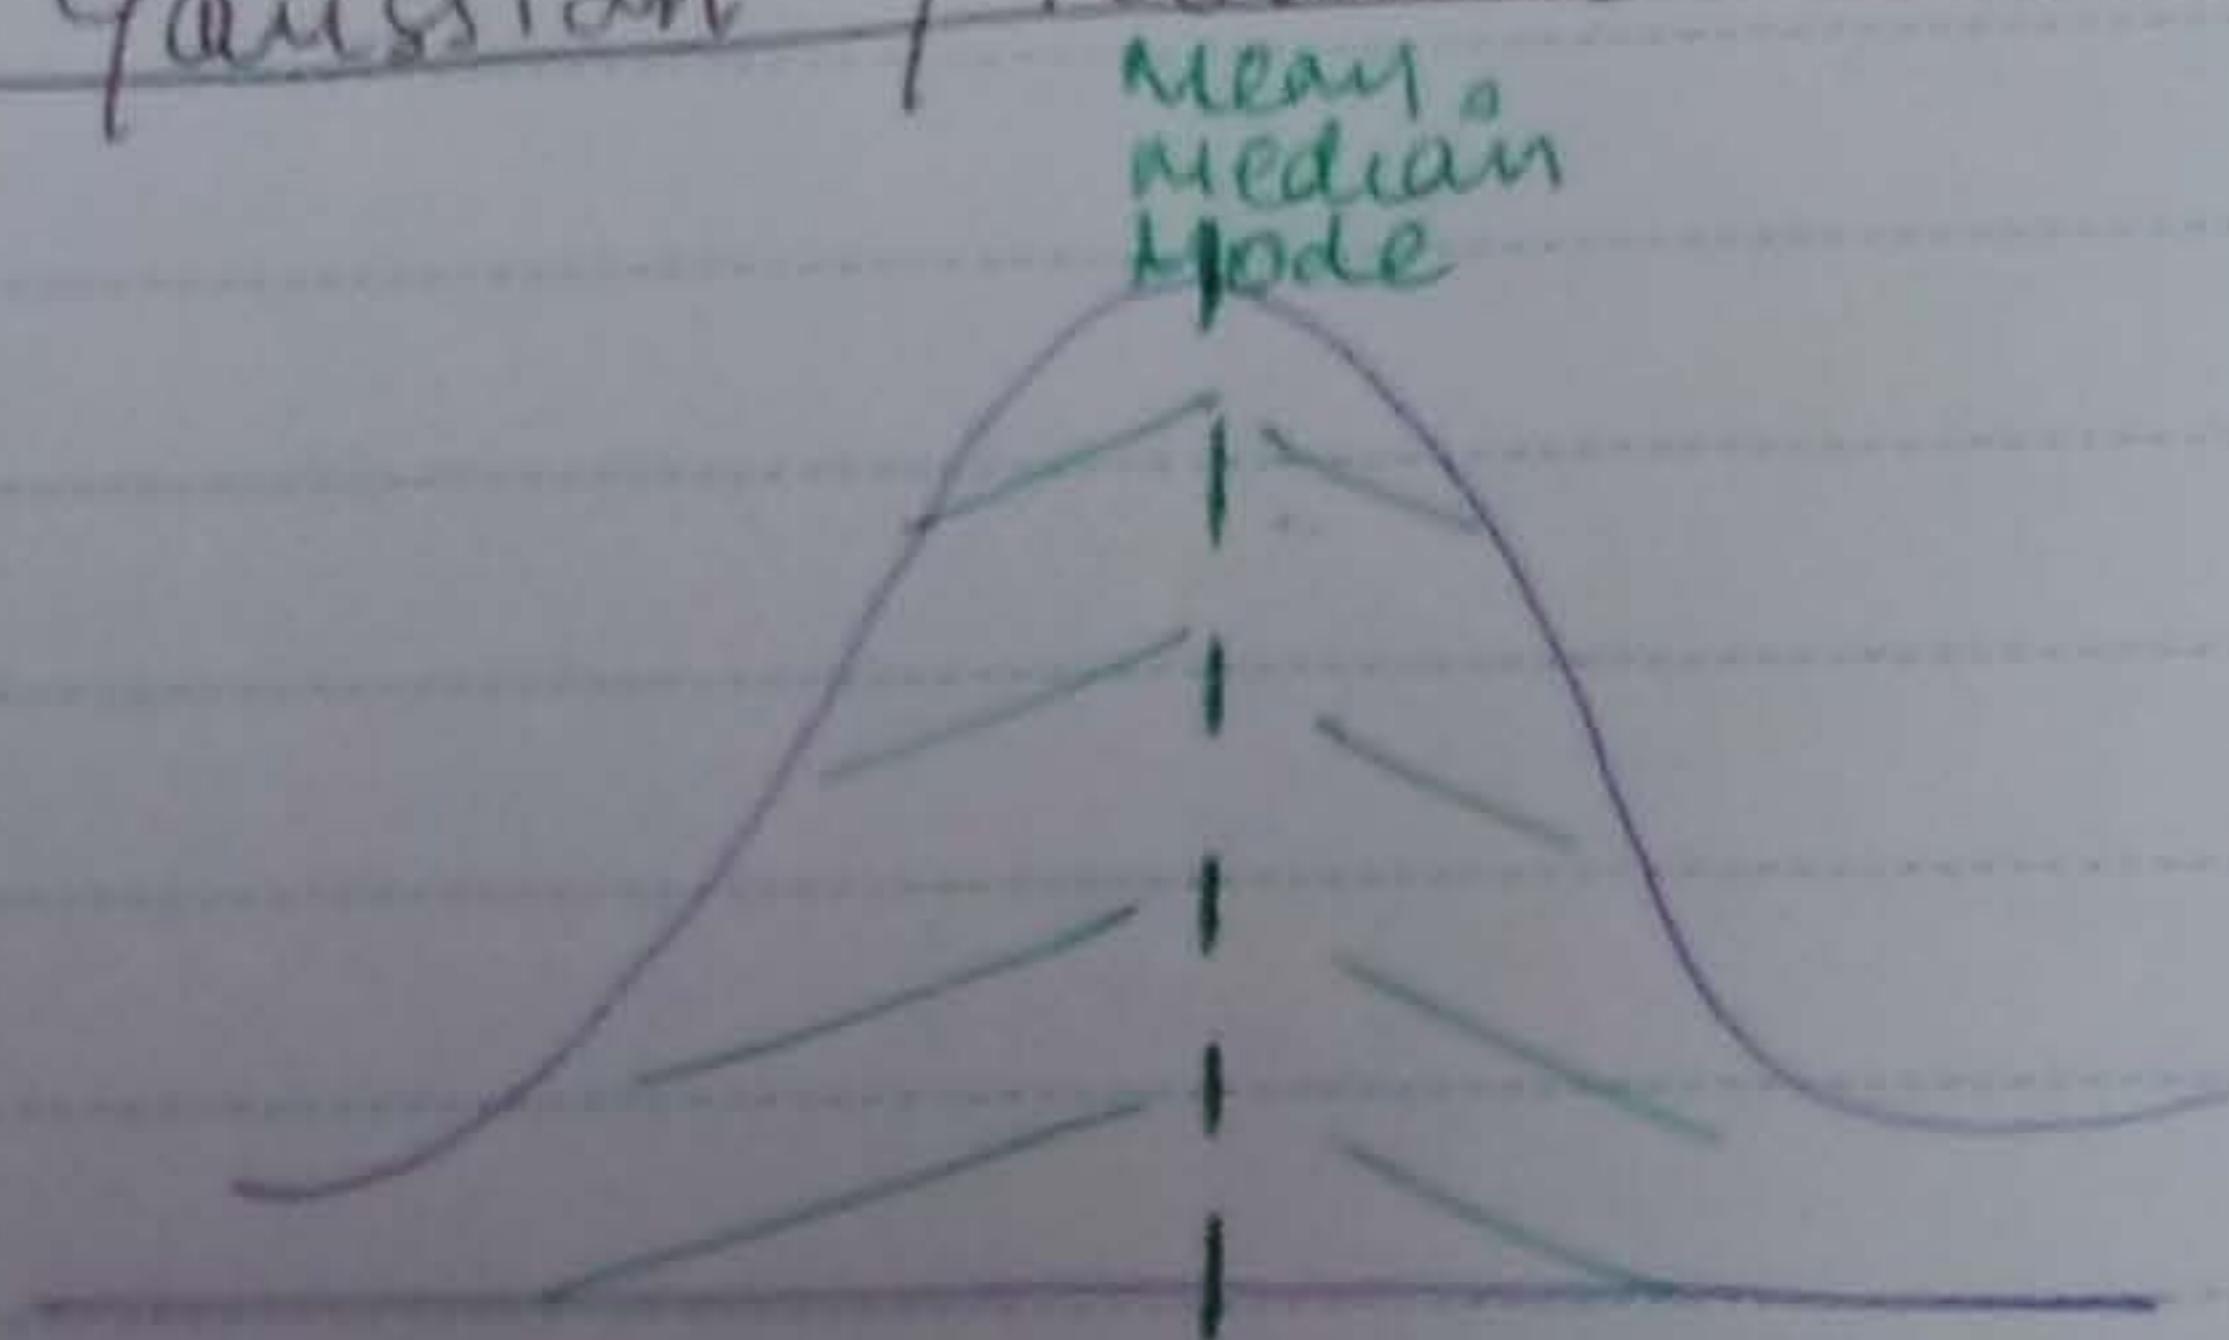 Gaussian
Mean,
Median
Mode